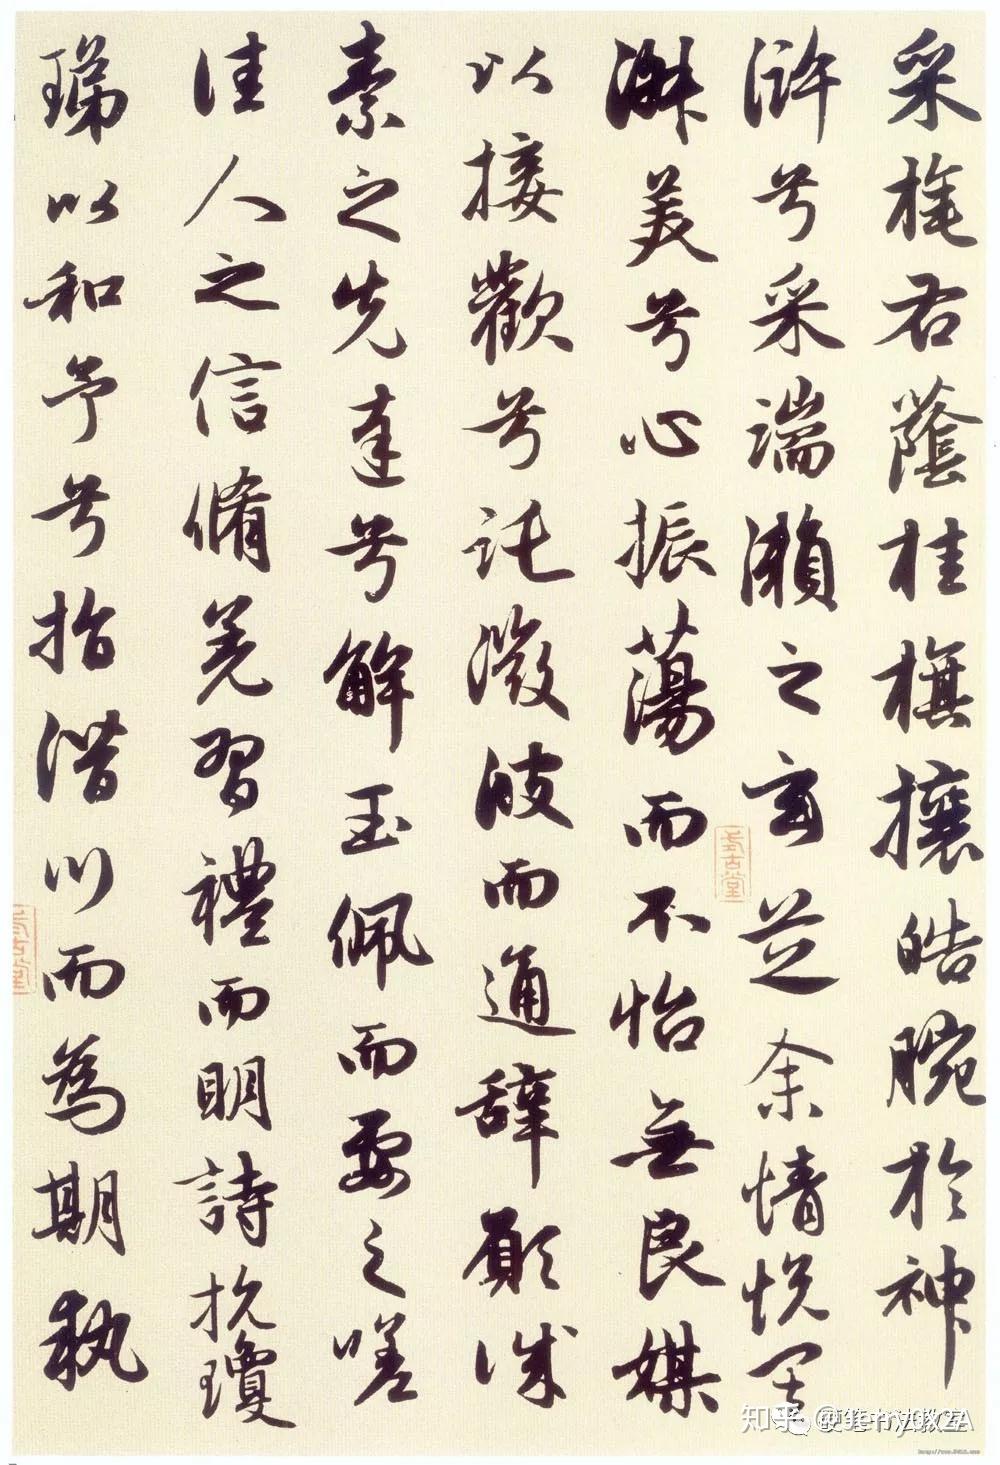 采旄右蔭桂旗攘皓腕於神
滸兮采湍瀨之玄芝余情悅其
淑美兮心振蕩而不怡無良媒
以接歡兮託微波而通辭願誠
素之先達兮解玉佩而要之嗟
佳人之信脩羌習禮而明詩抗瓊
珶以和予兮指潛川而為期執
知乎